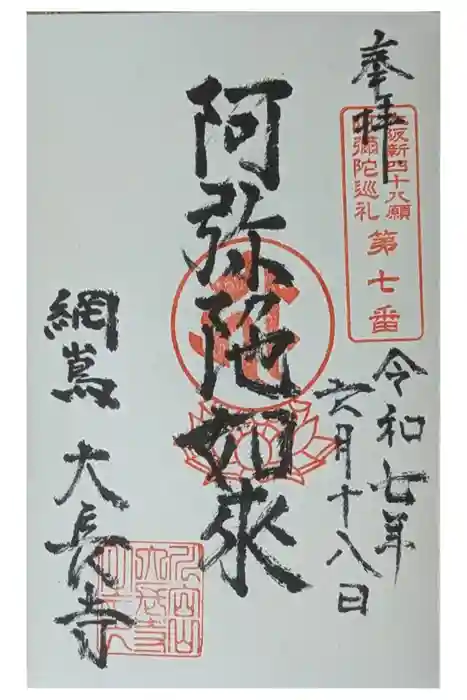 奉拝
大阪新四十八願
阿彌陀巡礼
第七番
令和七年
六月十八日
阿弥陀如来
網嶌 大長寺